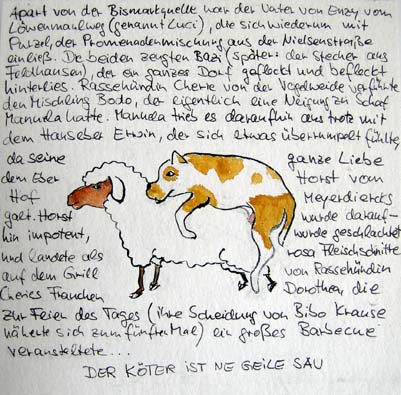 Apart von der Bismarkquelle war der Vater von Enzy vom
Löwenmaulweg (genannt Luci), die sich wiederum mit
Purzel, der Promenadenmischung aus der Nielsenstraße
einließ. Die beiden zeugten Bazi (später: der Stecher aus
Feldhausen), der ein ganzes Dorf gefleckt und befleckt
hinterließ. Rassehündin Cherie von der Vogelweide verführte
den Mischling Bodo, der eigentlich eine Neigung zu Schaf
Manuela hatte. Manuela trieb es daraufhin aus trotz mit
dem Hauseber Erwin, der sich etwas überrumpelt fühlte,
da seine ganze Liebe
dem Eber Horst vom
Hof Meyerdiercks
galt. Horst wurde darauf-
hin impotent, wurde geschlachtet
und landete als rosa Fleischschnitte
auf dem Grill von Rassehündin
Cheries Frauchen Dorothea, die
zur Feier des Tages (ihre Scheidung von Bibo Krause
näherte sich zum fünften Mal) ein großes Barbecue
veranstaltete...
DER KÖTER IST NE GEILE SAU